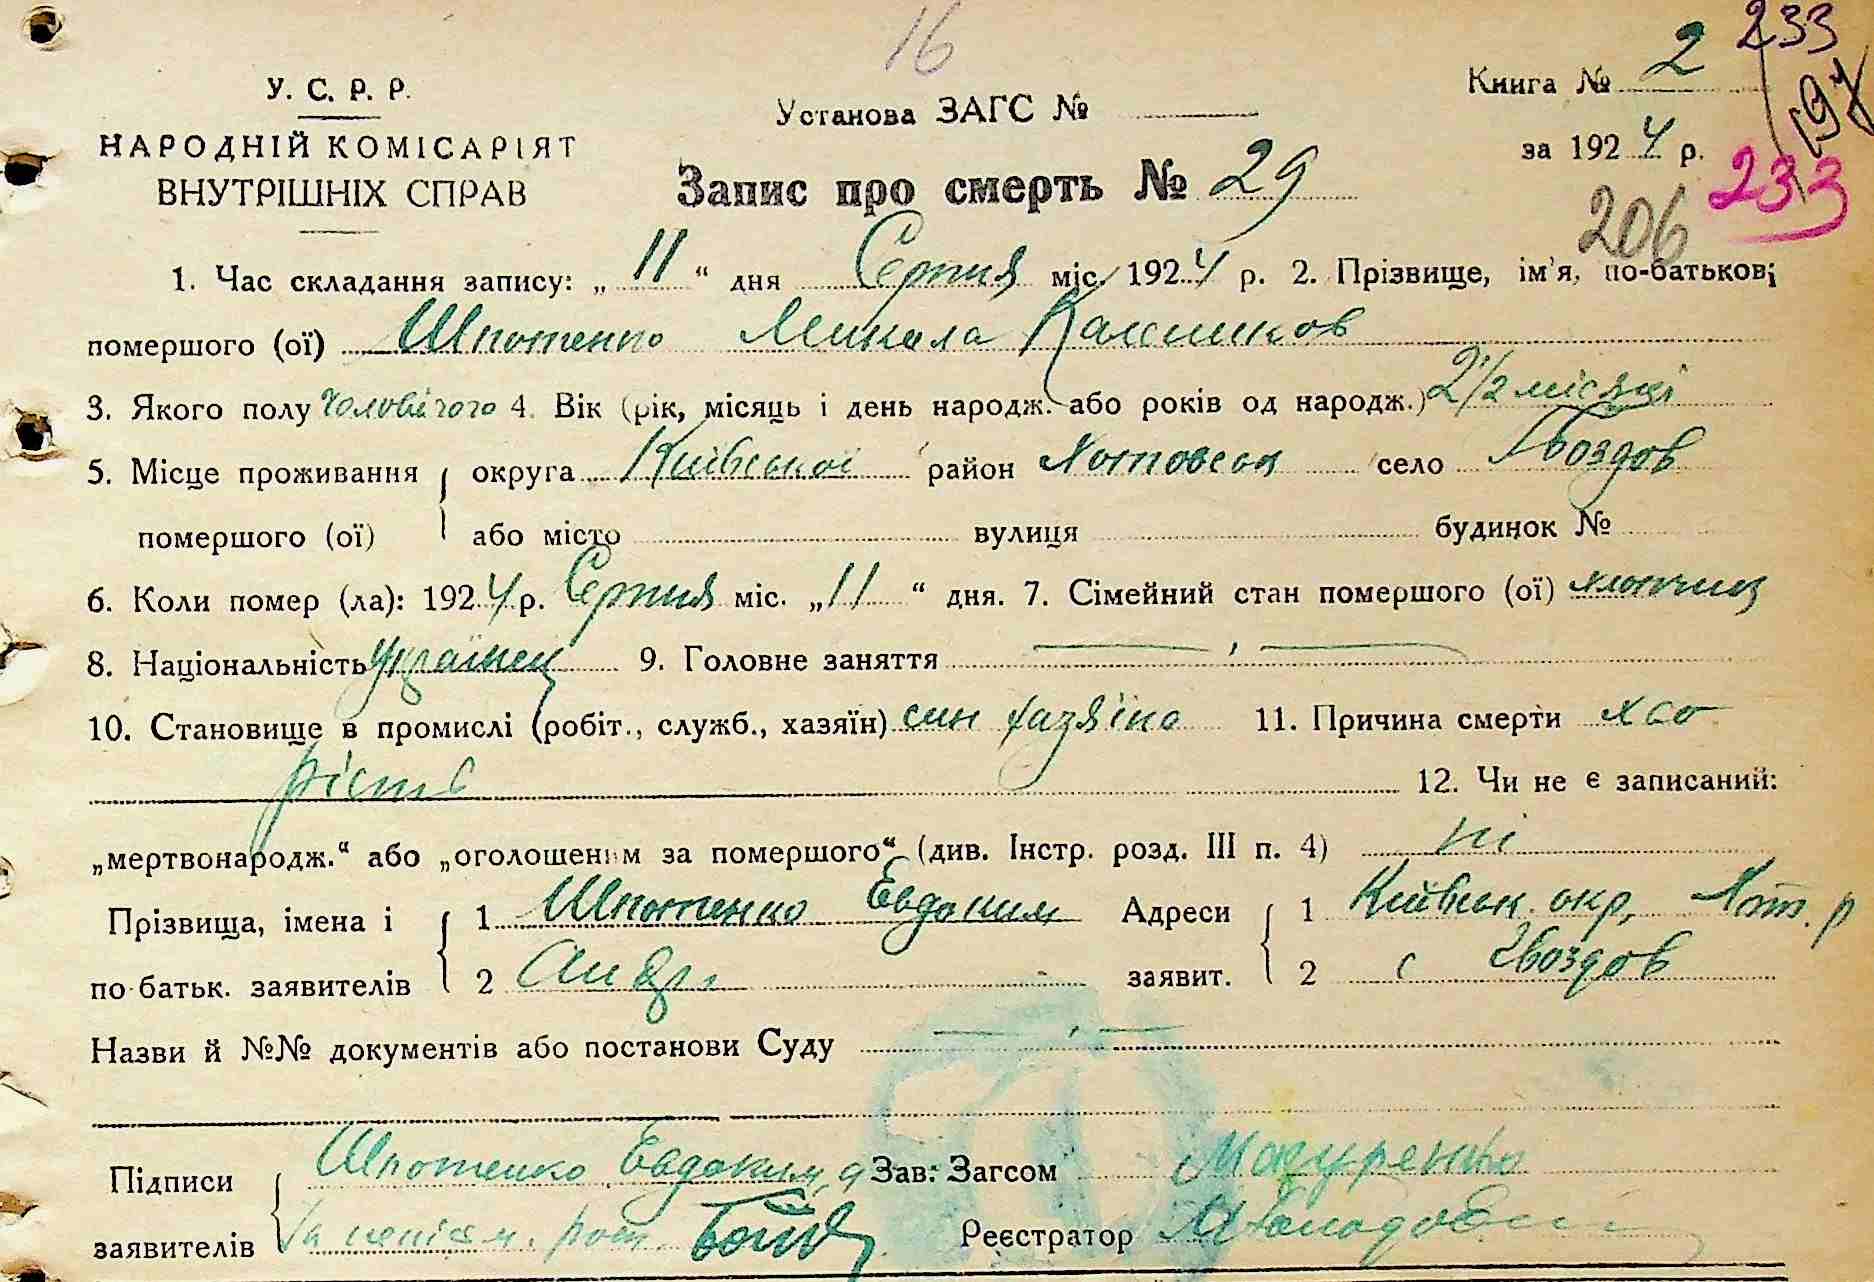 16
233
197
У. С. Р. Р.
Книга № 2
Установа ЗАГС №
НАРОДНІЙ КОМІСАРІЯТ
за 1924 р.
233
ВНУТРІШНІХ СПРАВ
Запис про смерть № 29
206
1. Час складання запису: „ 11 “ дня Серпня міс. 1924 р. 2. Прізвище, ім'я, по-батькові
помершого (ої) Шпотенко Микола
3. Якого полу чоловічого 4. Вік (рік, місяць і день народж. або років од народж.) 2 1/2 місяці
5. Місце проживання округа Київської район Хотовськ село Гвоздов
помершого (ої) або місто вулиця будинок №
6. Коли помер (ла): 1924 р. Серпня міс. „ 11 “ дня. 7. Сімейний стан помершого (ої) хлопчик
8. Національність Українец 9. Головне заняття
10. Становище в промислі (робіт., служб., хазяїн) син хазяїна 11. Причина смерти хво
рість 12. Чи не є записаний:
„мертвонародж.“ або „оголошеним за помершого“ (див. Інстр. розд. III п. 4) ні
Прізвища, імена і 1 Шпотенко Евдоким Адреси 1 Київськ. окр, Хот. р
по-батьк. заявителів 2 Андр. заявит. 2 с Гвоздов
Назви й №№ документів або постанови Суду
Підписи Шпотенко Евдоким, а Зав. Загсом
заявителів За неписм. рос. Реєстратор